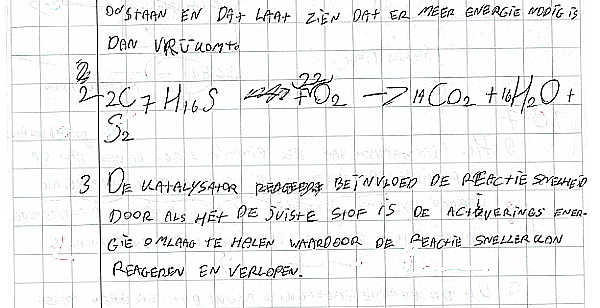 ONTSTAAN EN DAT LAAT ZIEN DAT ER MEER ENERGIE NODIG IS
DAN VRIJKOMT.
2 2C7H16S + 22O2 → 14CO2 + 16H2O +
S2
3 DE KATALYSATOR BEÏNVLOED DE REACTIE SNELHEID
DOOR ALS HET DE JUISTE STOF IS DE ACTIVERINGS ENER-
GIE OMLAAG TE HALEN WAARDOOR DE REACTIE SNELLER KAN
REAGEREN EN VERLOPEN.